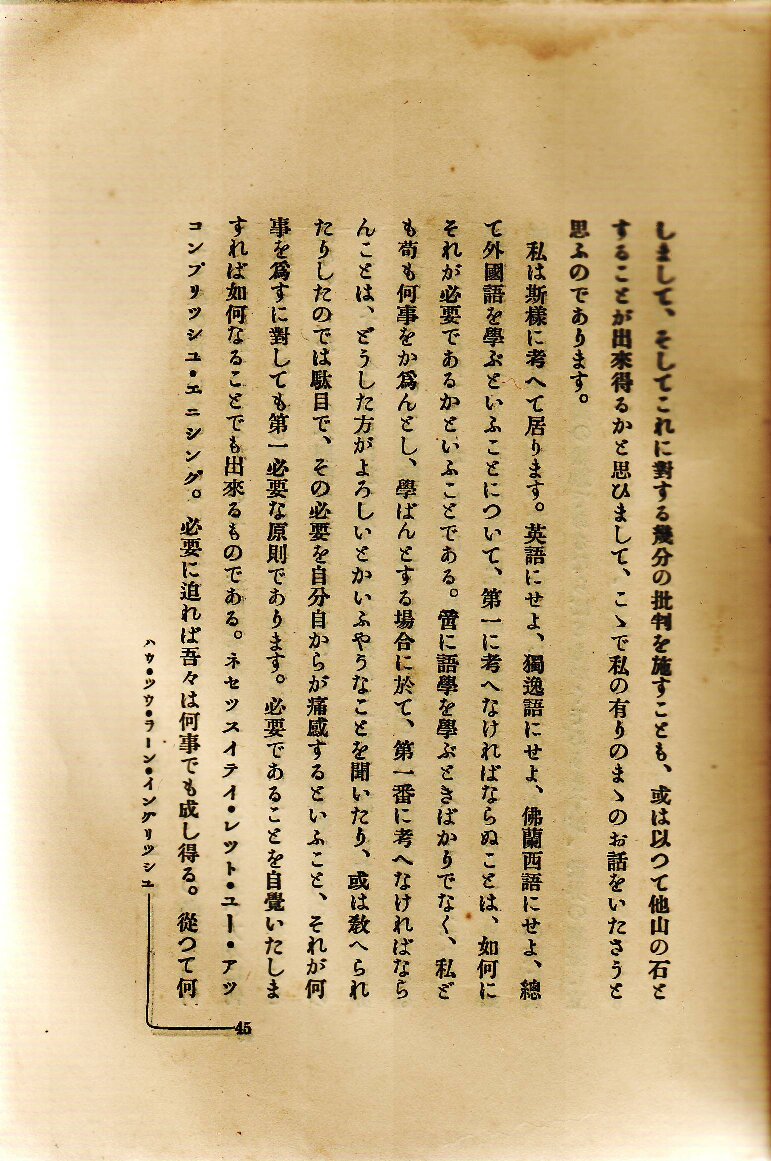 しまして、そしてこれに對する幾分の批判を施すことも、或は以つて他山の石と
することが出來得るかと思ひまして、こゝで私の有りのまゝのお話をいたさうと
思ふのであります。
私は斯樣に考へて居ります。英語にせよ、獨逸語にせよ、佛蘭西語にせよ、總
て外國語を學ぶといふことについて、第一に考へなければならぬことは、如何に
それが必要であるかといふことである。啻に語學を學ぶときばかりでなく、私ど
も苟も何事をか爲んとし、學ばんとする場合に於て、第一番に考へなければなら
んことは、どうした方がよろしいとかいふやうなことを聞いたり、或は敎へられ
たりしたのでは駄目で、その必要を自分自からが痛感するといふこと、それが何
事を爲すに對しても第一必要な原則であります。必要であることを自覺いたしま
すれば如何なることでも出來るものである。ネセツスイテイ・レツト・ユー・アツ
コンプリツシユ・エニシング。必要に迫れば吾々は何事でも成し得る。從つて何
ハウ・ツウ・ラーン・イングリツシユ
45